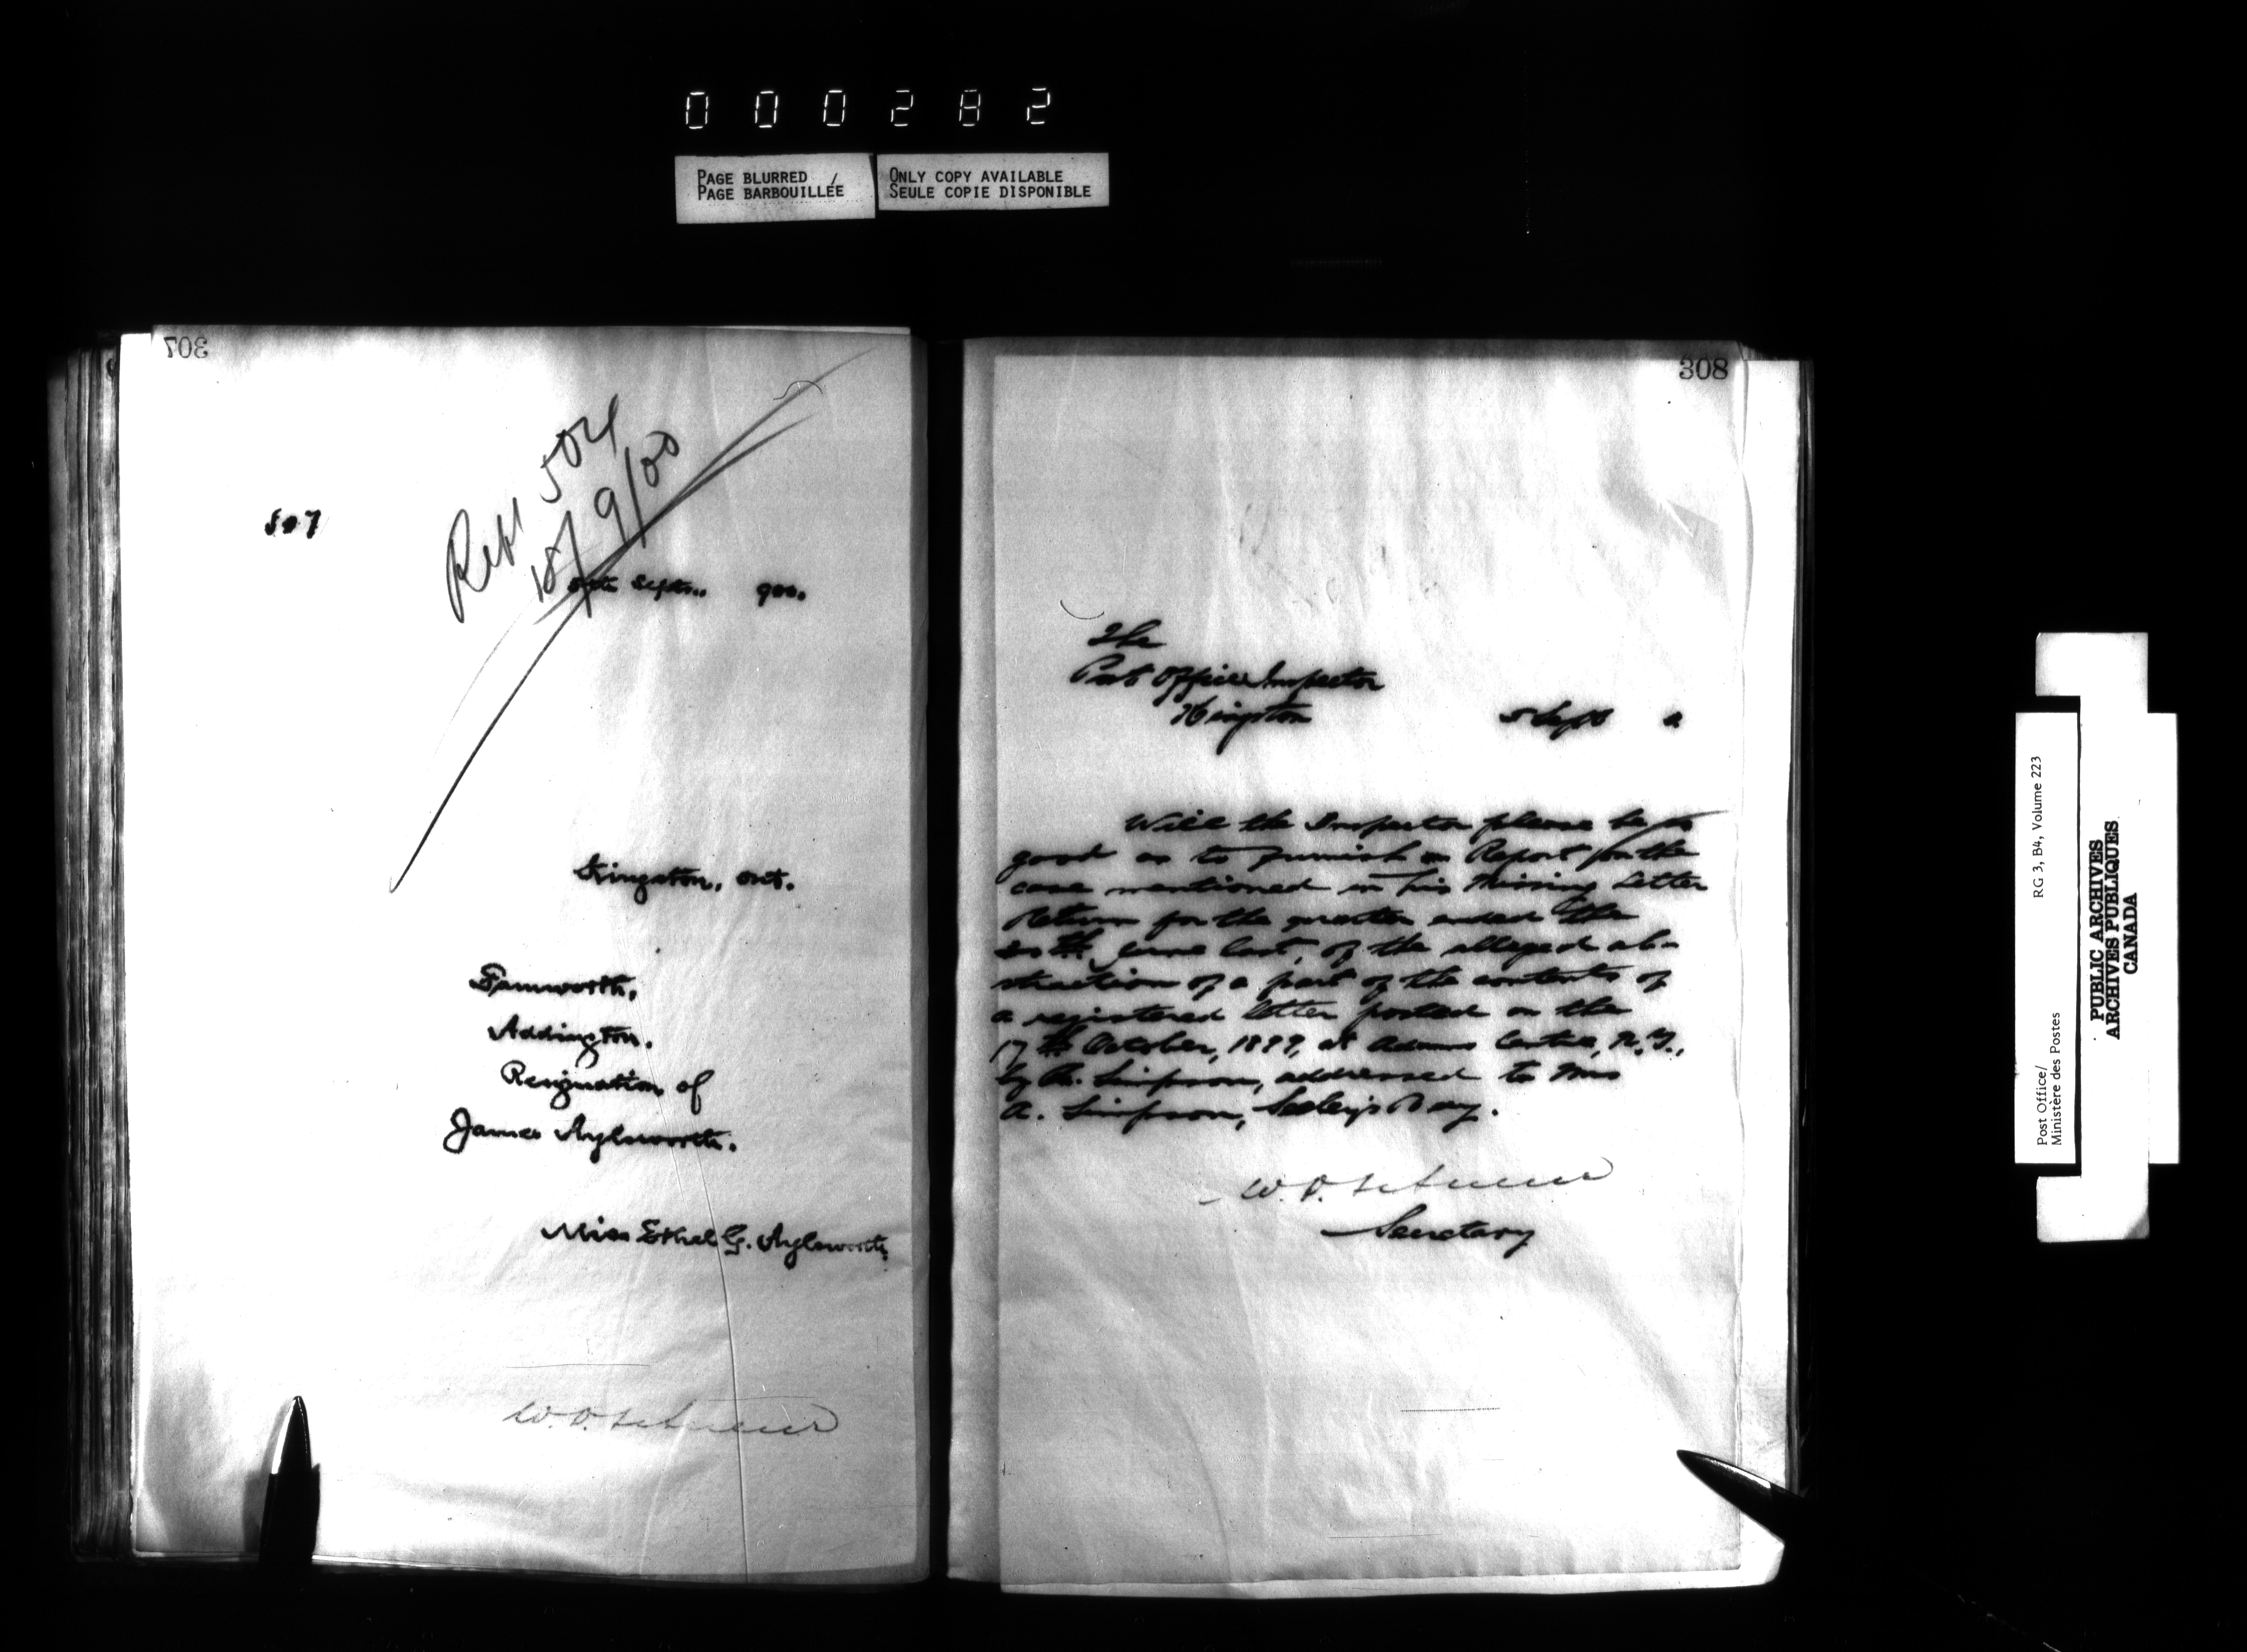 000282
PAGE BLURRED /
PAGE BARBOUILLÉE
ONLY COPY AVAILABLE
SEULE COPIE DISPONIBLE
307
507
Rep't 504
18/9/00
5th Septr. 900.
Kingston, Ont.
Tamworth,
Addington.
Resignation of
James Aylsworth.
Miss Ethel G. Aylsworth
W.D.
308
The
Post Office Inspector
Kingston
5 Sept
Will the Inspector please be so
good as to furnish a Report for the
case mentioned in his Missing Letter
Return for the quarter ended the
30th June last, of the alleged ab-
straction of a part of the contents of
a registered letter posted on the
17th October, 1899, at Adams Centre, N.Y.,
by A. Simpson, addressed to Mrs
A. Simpson, Seeley's Bay.
W.D.
Secretary
Post Office/
Ministère des Postes
RG 3, B4, Volume 223
PUBLIC ARCHIVES
ARCHIVES PUBLIQUES
CANADA